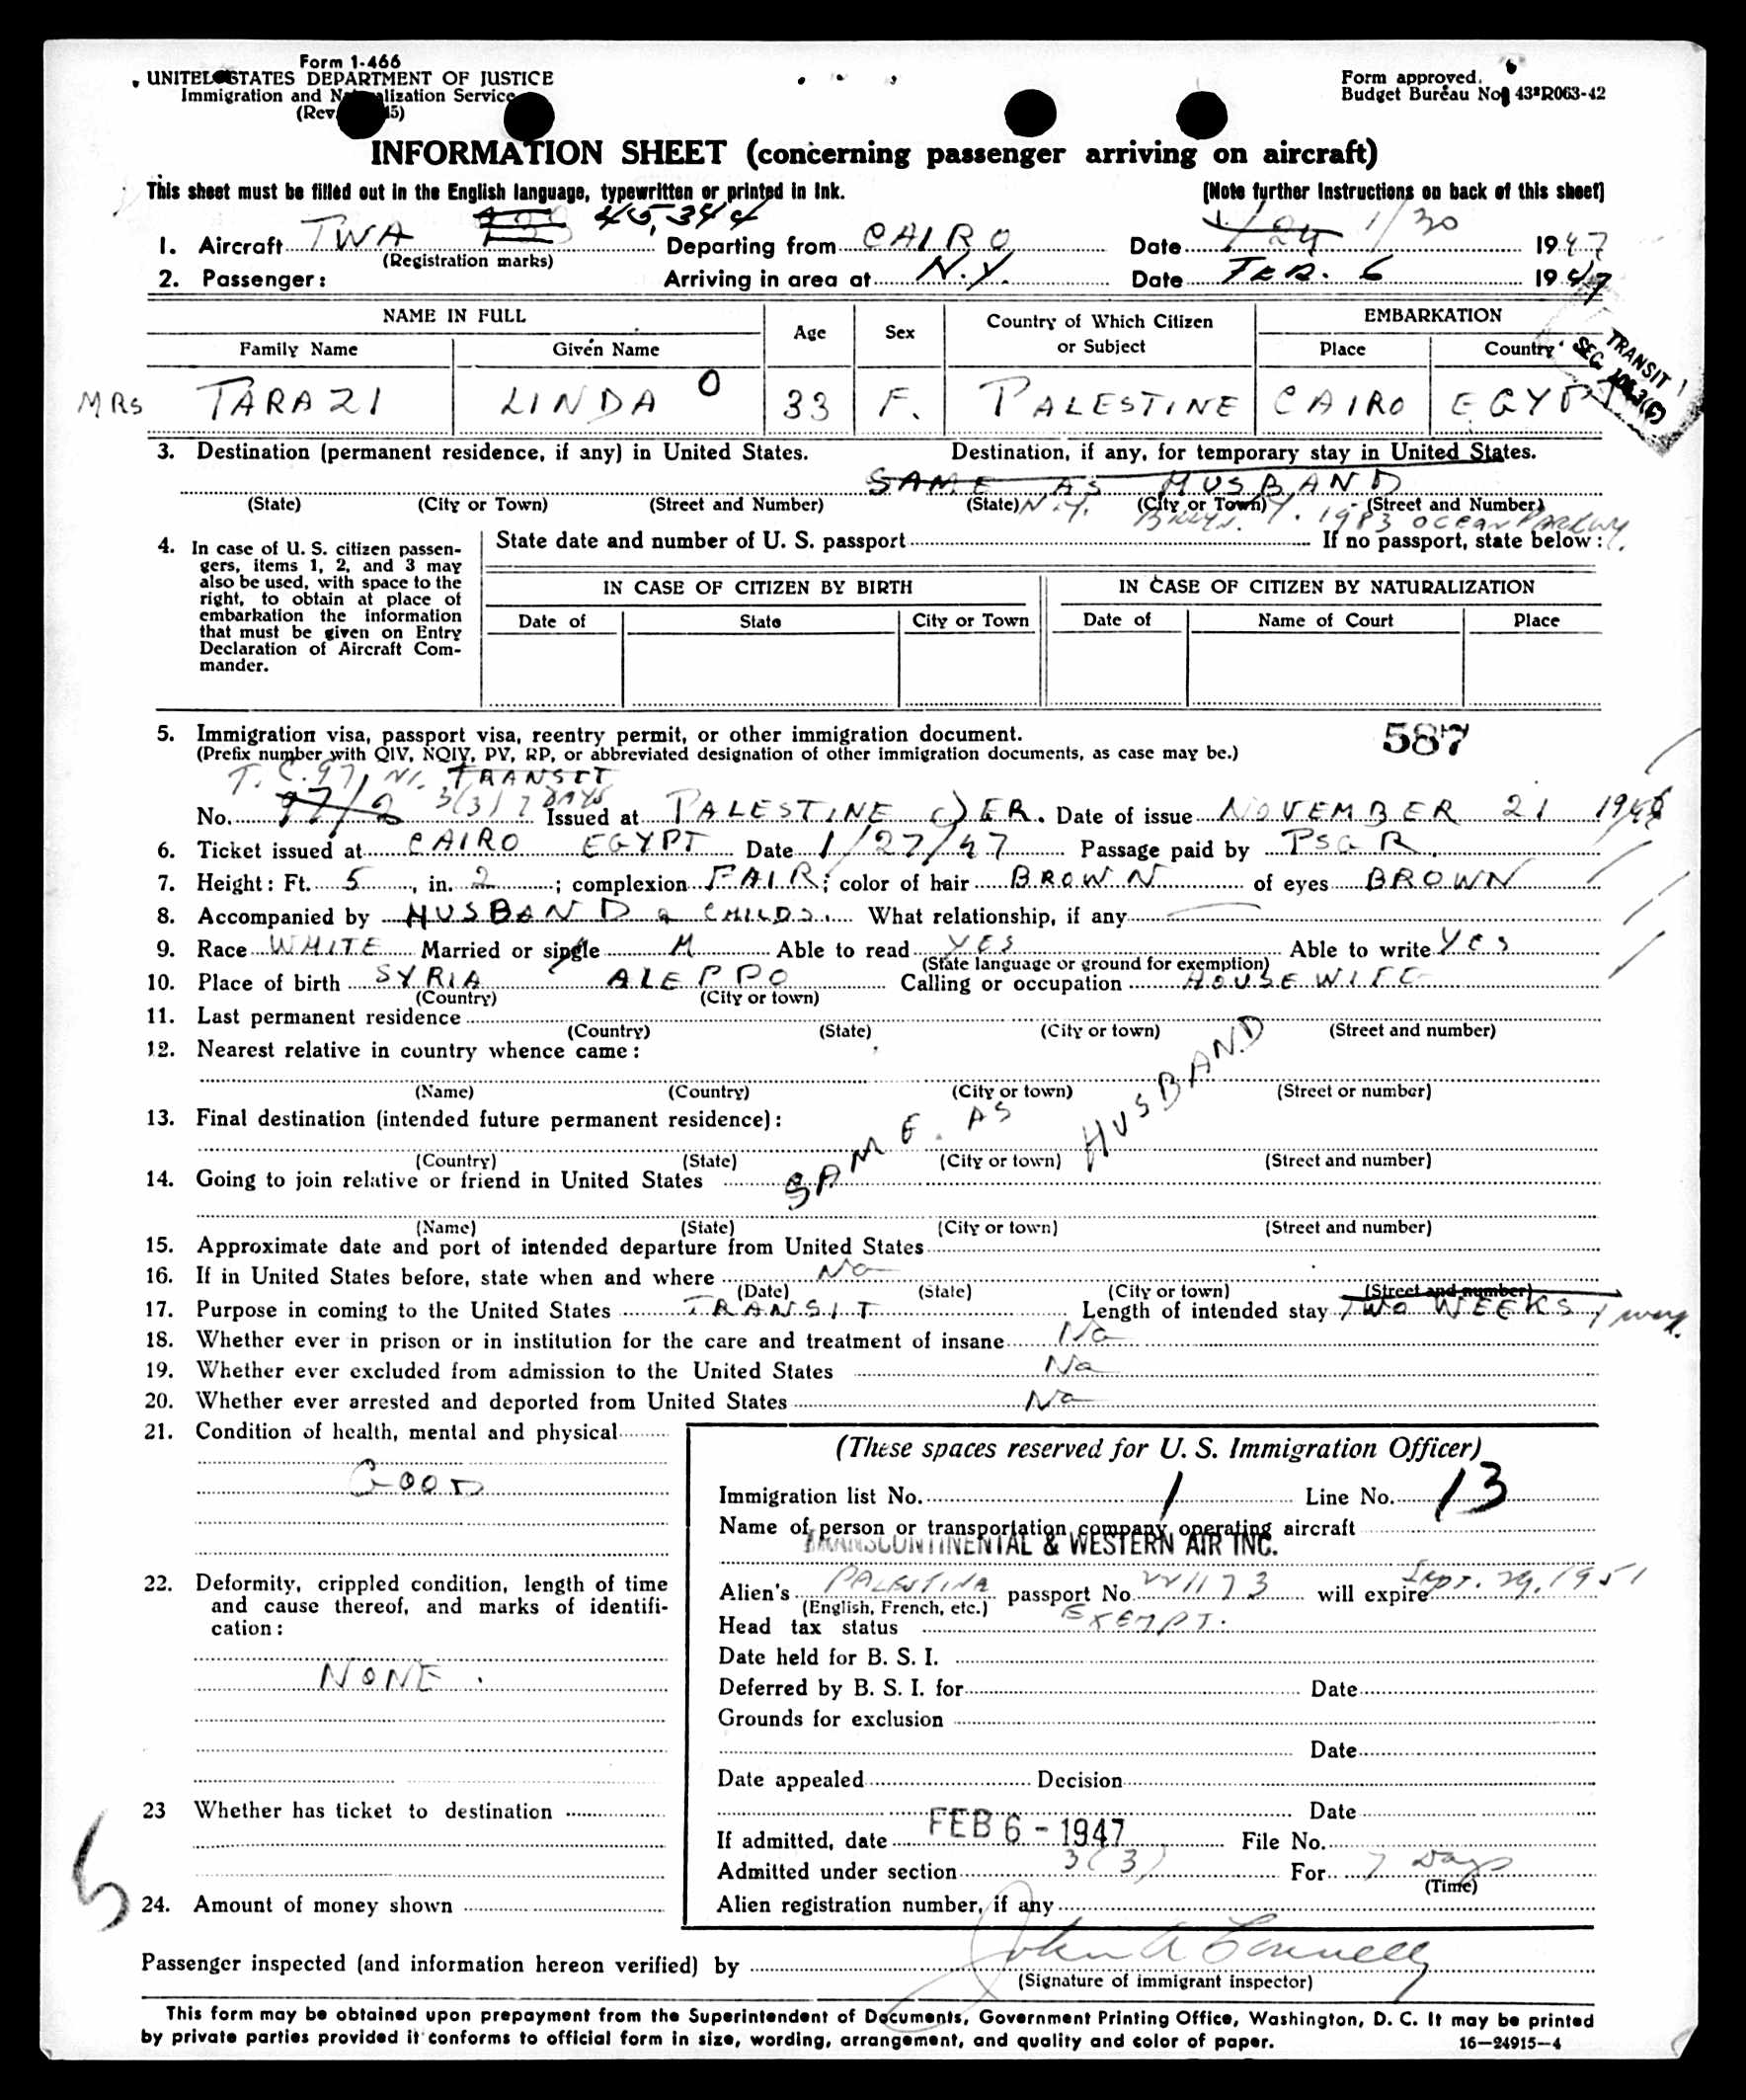 Form 1-466
UNITED STATES DEPARTMENT OF JUSTICE
Immigration and Naturalization Service
(Rev. 15)
Form approved.
Budget Bureau No. 43-R063-42
INFORMATION SHEET (concerning passenger arriving on aircraft)
This sheet must be filled out in the English language, typewritten or printed in ink.
(Note further instructions on back of this sheet)
45,344
1. Aircraft TWA Departing from CAIRO Date 1/24 1/30 1947
(Registration marks)
2. Passenger: Arriving in area at N.Y. Date FEB. 6 1947
NAME IN FULL Age Sex Country of Which Citizen or Subject EMBARKATION
Family Name Given Name Place Country
TRANSIT
SEC.
MRS TARAZI LINDA O 33 F. PALESTINE CAIRO EGYPT
3. Destination (permanent residence, if any) in United States. Destination, if any, for temporary stay in United States.
SAME AS HUSBAND
(State) (City or Town) (Street and Number) (State) (City or Town) (Street and Number)
N.Y. 1983 OCEAN PARKWY.
4. In case of U. S. citizen passengers, items 1, 2, and 3 may also be used, with space to the right, to obtain at place of embarkation the information that must be given on Entry Declaration of Aircraft Commander.
State date and number of U. S. passport If no passport, state below:
IN CASE OF CITIZEN BY BIRTH IN CASE OF CITIZEN BY NATURALIZATION
Date of State City or Town Date of Name of Court Place
5. Immigration visa, passport visa, reentry permit, or other immigration document.
587
(Prefix number with QIV, NQIV, PV, RP, or abbreviated designation of other immigration documents, as case may be.)
T. C. 97/ TRANSIT
3(3) 7 DAYS
No. 97/2 Issued at PALESTINE JER. Date of issue NOVEMBER 21 194
6. Ticket issued at CAIRO EGYPT Date 1/27/47 Passage paid by PSGR.
7. Height: Ft. 5, in. 2; complexion FAIR; color of hair BROWN of eyes BROWN
8. Accompanied by HUSBAND & CHILDS. What relationship, if any
9. Race WHITE Married or single M Able to read YES Able to write YES
(State language or ground for exemption)
10. Place of birth SYRIA ALEPPO Calling or occupation HOUSEWIFE
(Country) (City or town)
11. Last permanent residence
(Country) (State) (City or town) (Street and number)
12. Nearest relative in country whence came:
(Name) (Country) (City or town) (Street or number)
13. Final destination (intended future permanent residence):
SAME AS HUSBAND
(Country) (State) (City or town) (Street and number)
14. Going to join relative or friend in United States
(Name) (State) (City or town) (Street and number)
15. Approximate date and port of intended departure from United States
16. If in United States before, state when and where No
(Date) (State) (City or town) (Street and number)
17. Purpose in coming to the United States TRANSIT Length of intended stay TWO WEEKS
18. Whether ever in prison or in institution for the care and treatment of insane No
19. Whether ever excluded from admission to the United States No
20. Whether ever arrested and deported from United States No
21. Condition of health, mental and physical
GOOD
22. Deformity, crippled condition, length of time and cause thereof, and marks of identification:
NONE.
23 Whether has ticket to destination
24. Amount of money shown
(These spaces reserved for U. S. Immigration Officer)
Immigration list No. 1 Line No. 13
Name of person or transportation company operating aircraft
TRANSCONTINENTAL & WESTERN AIR INC.
Alien's PALESTINA passport No. 221173 will expire Sept. 29, 1951
(English, French, etc.)
Head tax status EXEMPT.
Date held for B. S. I.
Deferred by B. S. I. for Date
Grounds for exclusion
Date
Date appealed Decision
Date
If admitted, date FEB 6 - 1947 File No.
Admitted under section 3(3) For 7 Days
(Time)
Alien registration number, if any
Passenger inspected (and information hereon verified) by John A Connelly
(Signature of immigrant inspector)
This form may be obtained upon prepayment from the Superintendent of Documents, Government Printing Office, Washington, D. C. It may be printed
by private parties provided it conforms to official form in size, wording, arrangement, and quality and color of paper. 16—24915-4